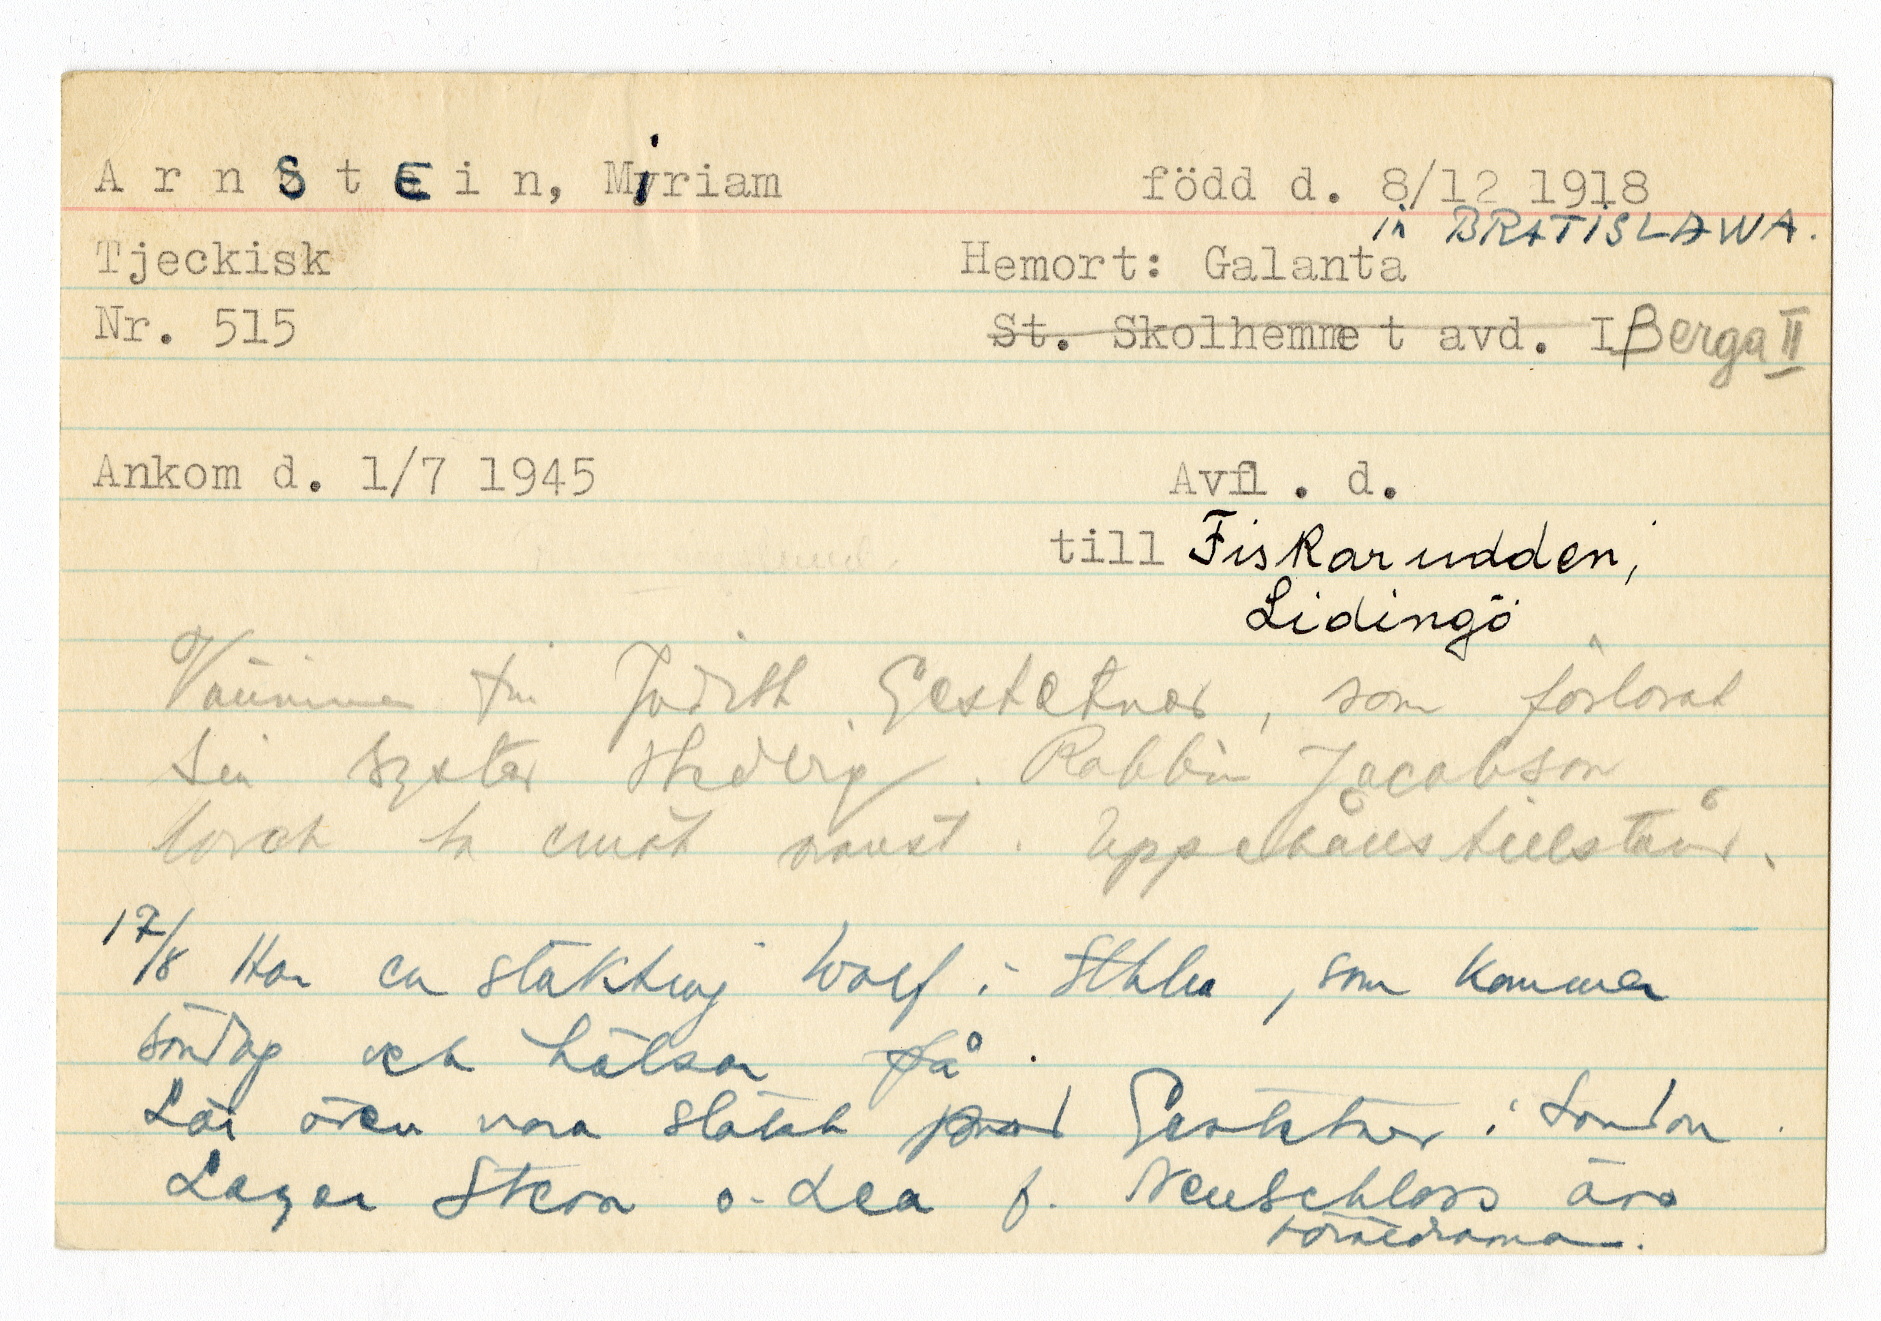 ArnStEin, Miriam född d. 8/12 1918
in BRATISLAWA.
Tjeckisk Hemort: Galanta
Nr. 515 St. Skolhemmet avd. I Berga II
Ankom d. 1/7 1945 Avfl. d.
till Fiskarudden,
Lidingö
Väninna till Judith Gestetner, som förlorat
sin syster Hedvig. Rabbin Jacobson
lovat ta emot snart. Uppehållstillstånd.
17/8 Har en släkting Wolf i Sthlm, som kommer
söndag och hälsar på.
Lär även vara släkt med Gestetner i London.
Stern o. Lea f. Neuschloss äro
föräldrarna.